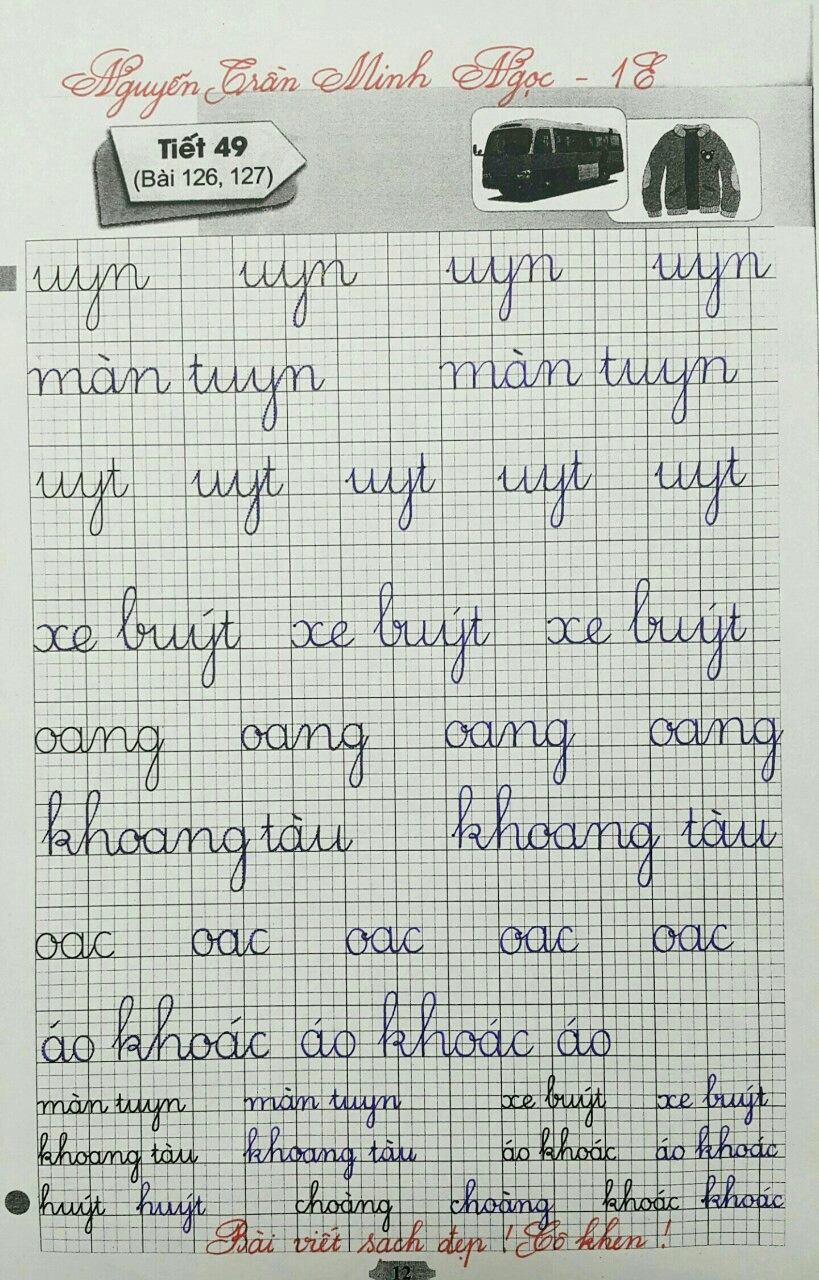 Nguyễn Trần Minh Ngọc - 1E
Tiết 49
(Bài 126, 127)
uyn uyn uyn uyn
màn tuyn màn tuyn
uyt uyt uyt uyt uyt
xe buýt xe buýt xe buýt
oang oang oang oang
khoang tàu khoang tàu
oac oac oac oac oac
áo khoác áo khoác áo
màn tuyn màn tuyn xe buýt xe buýt
khoang tàu khoang tàu áo khoác áo khoác
huýt huýt choàng choàng khoác khoác
Bài viết sạch đẹp! Cô khen!
12